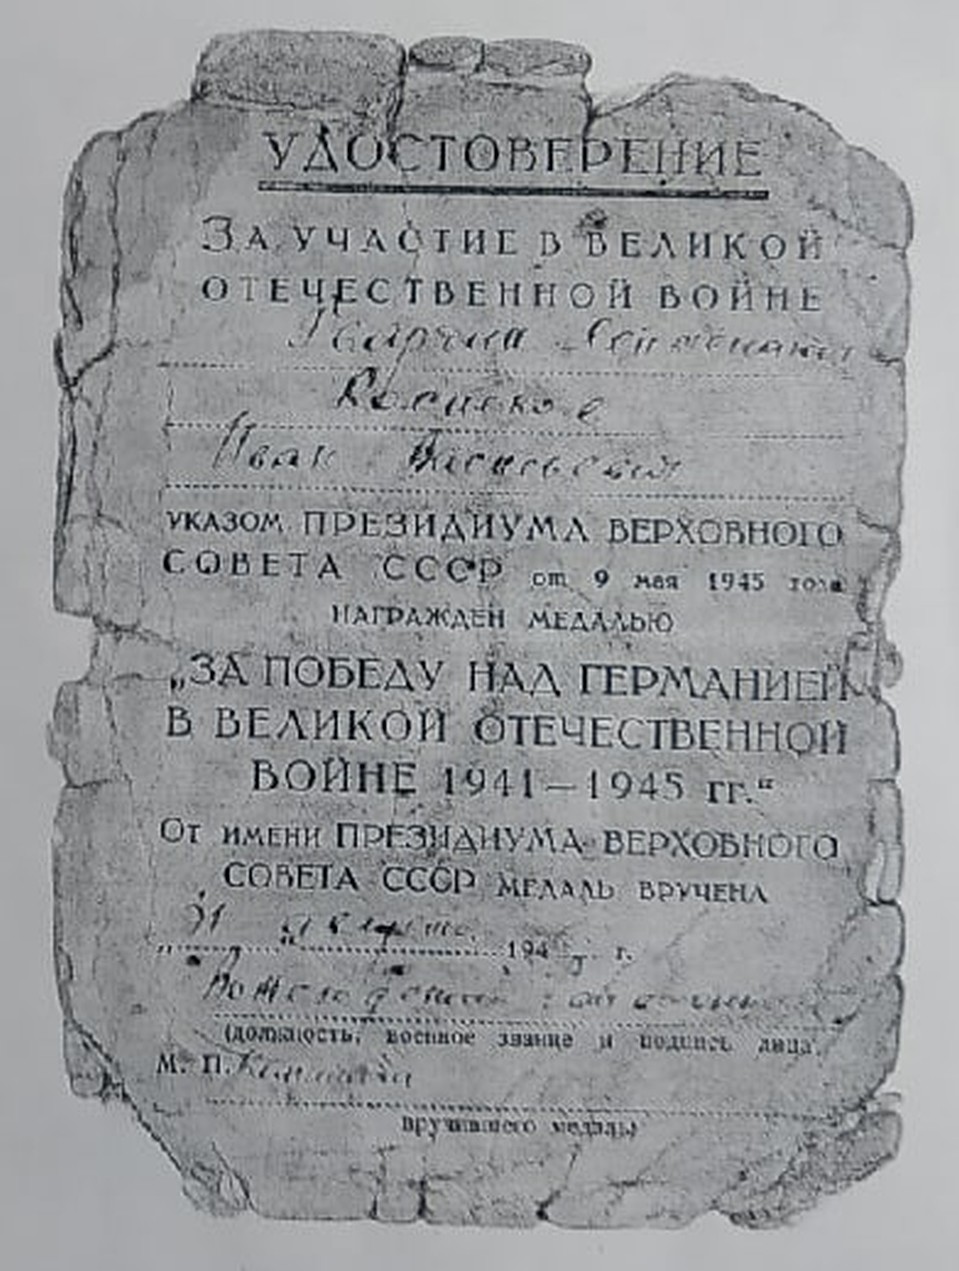 УДОСТОВЕРЕНИЕ
ЗА УЧАСТИЕ В ВЕЛИКОЙ
ОТЕЧЕСТВЕННОЙ ВОЙНЕ
Гвардии Лейтенант
Иван Васильевич
УКАЗОМ ПРЕЗИДИУМА ВЕРХОВНОГО
СОВЕТА СССР от 9 мая 1945 года
НАГРАЖДЕН МЕДАЛЬЮ
„ЗА ПОБЕДУ НАД ГЕРМАНИЕЙ
В ВЕЛИКОЙ ОТЕЧЕСТВЕННОЙ
ВОЙНЕ 1941—1945 гг.“
ОТ ИМЕНИ ПРЕЗИДИУМА ВЕРХОВНОГО
СОВЕТА СССР МЕДАЛЬ ВРУЧЕНА
194 г.
(должность, военное звание и подпись лица,
М. П.
вручившего медаль)